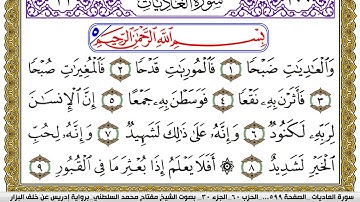 سورة العاديات
بِسْمِ اللَّهِ الرَّحْمَٰنِ الرَّحِيمِ
وَالْعَٰدِيَٰتِ ضَبْحًا ١ فَالْمُورِيَٰتِ قَدْحًا ٢ فَالْمُغِيرَٰتِ صُبْحًا
٣ فَأَثَرْنَ بِهِۦ نَقْعًا ٤ فَوَسَطْنَ بِهِۦ جَمْعًا ٥ إِنَّ الْإِنسَٰنَ
لِرَبِّهِۦ لَكَنُودٌ ٦ وَإِنَّهُۥ عَلَىٰ ذَٰلِكَ لَشَهِيدٌ ٧ وَإِنَّهُۥ لِحُبِّ
الْخَيْرِ لَشَدِيدٌ ٨ أَفَلَا يَعْلَمُ إِذَا بُعْثِرَ مَا فِي الْقُبُورِ ٩
سورة العاديات _ الصفحة ٥٩٩ _ الحزب ٦٠ _ الجزء ٣٠ _ بصوت الشيخ مفتاح محمد السلطني _ برواية إدريس عن خلف البزار